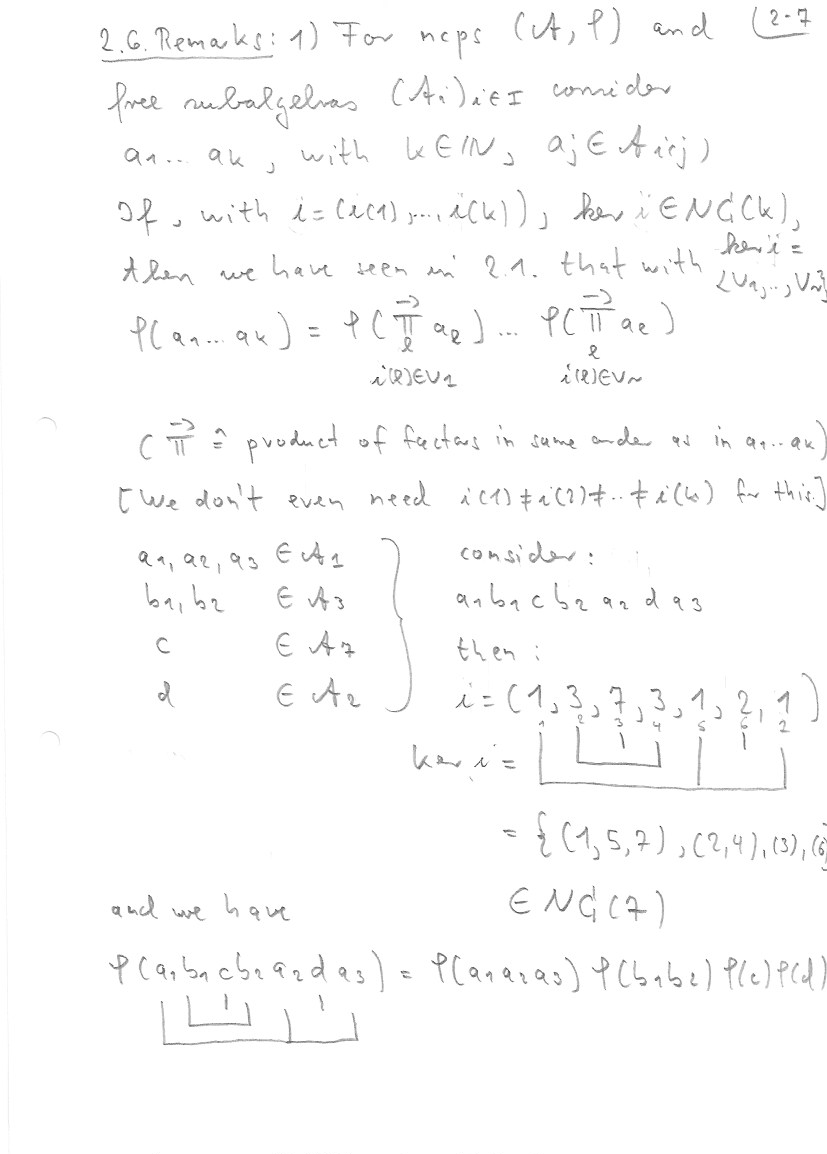 2.6. Remarks: 1) For ncps (A, φ) and (2-7
free subalgebras (Ai)i∈I consider
a1... ak, with k∈ℕ, aj ∈ Ai(j)
If, with i=(i(1),...,i(k)), ker i ∈ NC(k),
then we have seen in 2.1. that with ker i =
{V1,..,Vr}
φ(a1...ak) = φ(∏→ aℓ)... φ(∏→ aℓ)
ℓ ℓ
i(ℓ)∈V1 i(ℓ)∈Vr
(∏→ ≙ product of factors in same order as in a1..ak)
[We don't even need i(1)≠i(2)≠..≠i(k) for this.]
a1, a2, a3 ∈ A1 } consider:
b1, b2 ∈ A3 a1 b1 c b2 a2 d a3
c ∈ A7 then:
d ∈ A2 i=(1,3,7,3,1,2,1)
1 2 3 4 5 6 7
ker i =
= {(1,5,7),(2,4),(3),(6)}
and we have ∈ NC(7)
φ(a1 b1 c b2 a2 d a3) = φ(a1 a2 a3) φ(b1 b2) φ(c) φ(d)